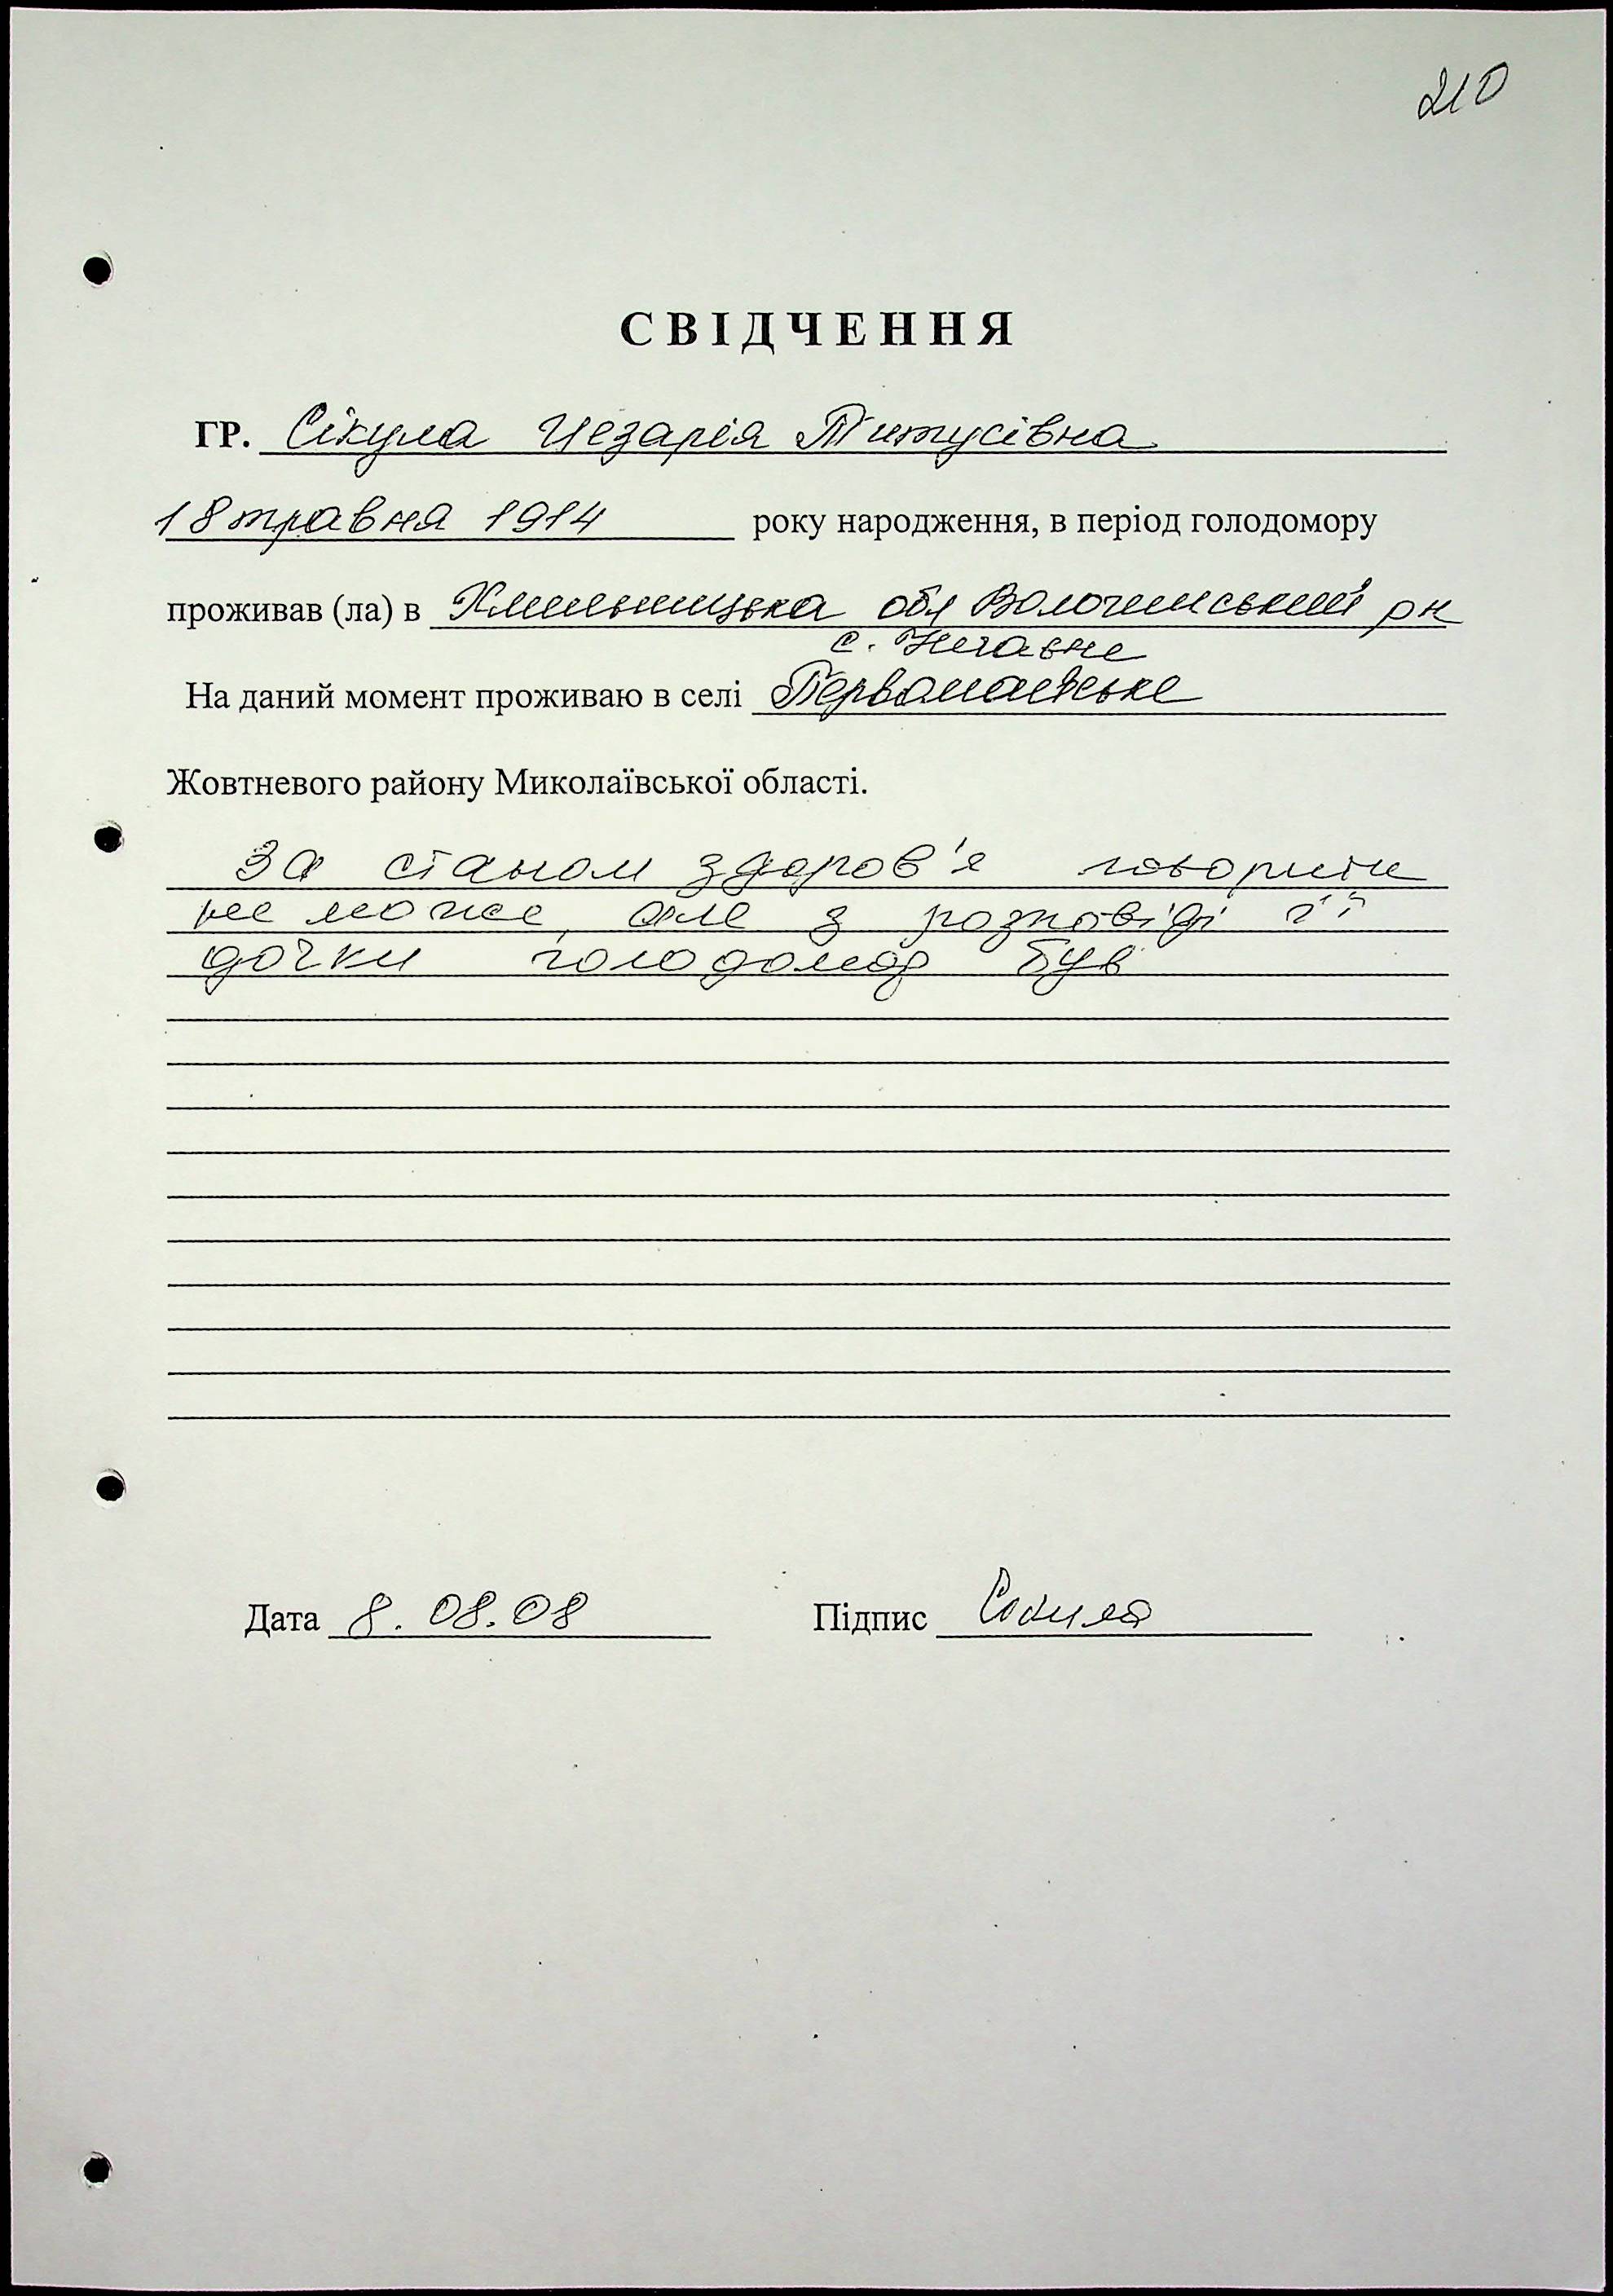 210
СВІДЧЕННЯ
ГР. Сікула Цезарія Титусівна
18 травня 1914 року народження, в період голодомору
проживав (ла) в Хмильницька обл Волочинський рн
с.
На даний момент проживаю в селі Первомайське
Жовтневого району Миколаївської області.
За станом здоров'я говорити
не може, але з розповіді її
дочки голодомор був
Дата 8.08.08 Підпис